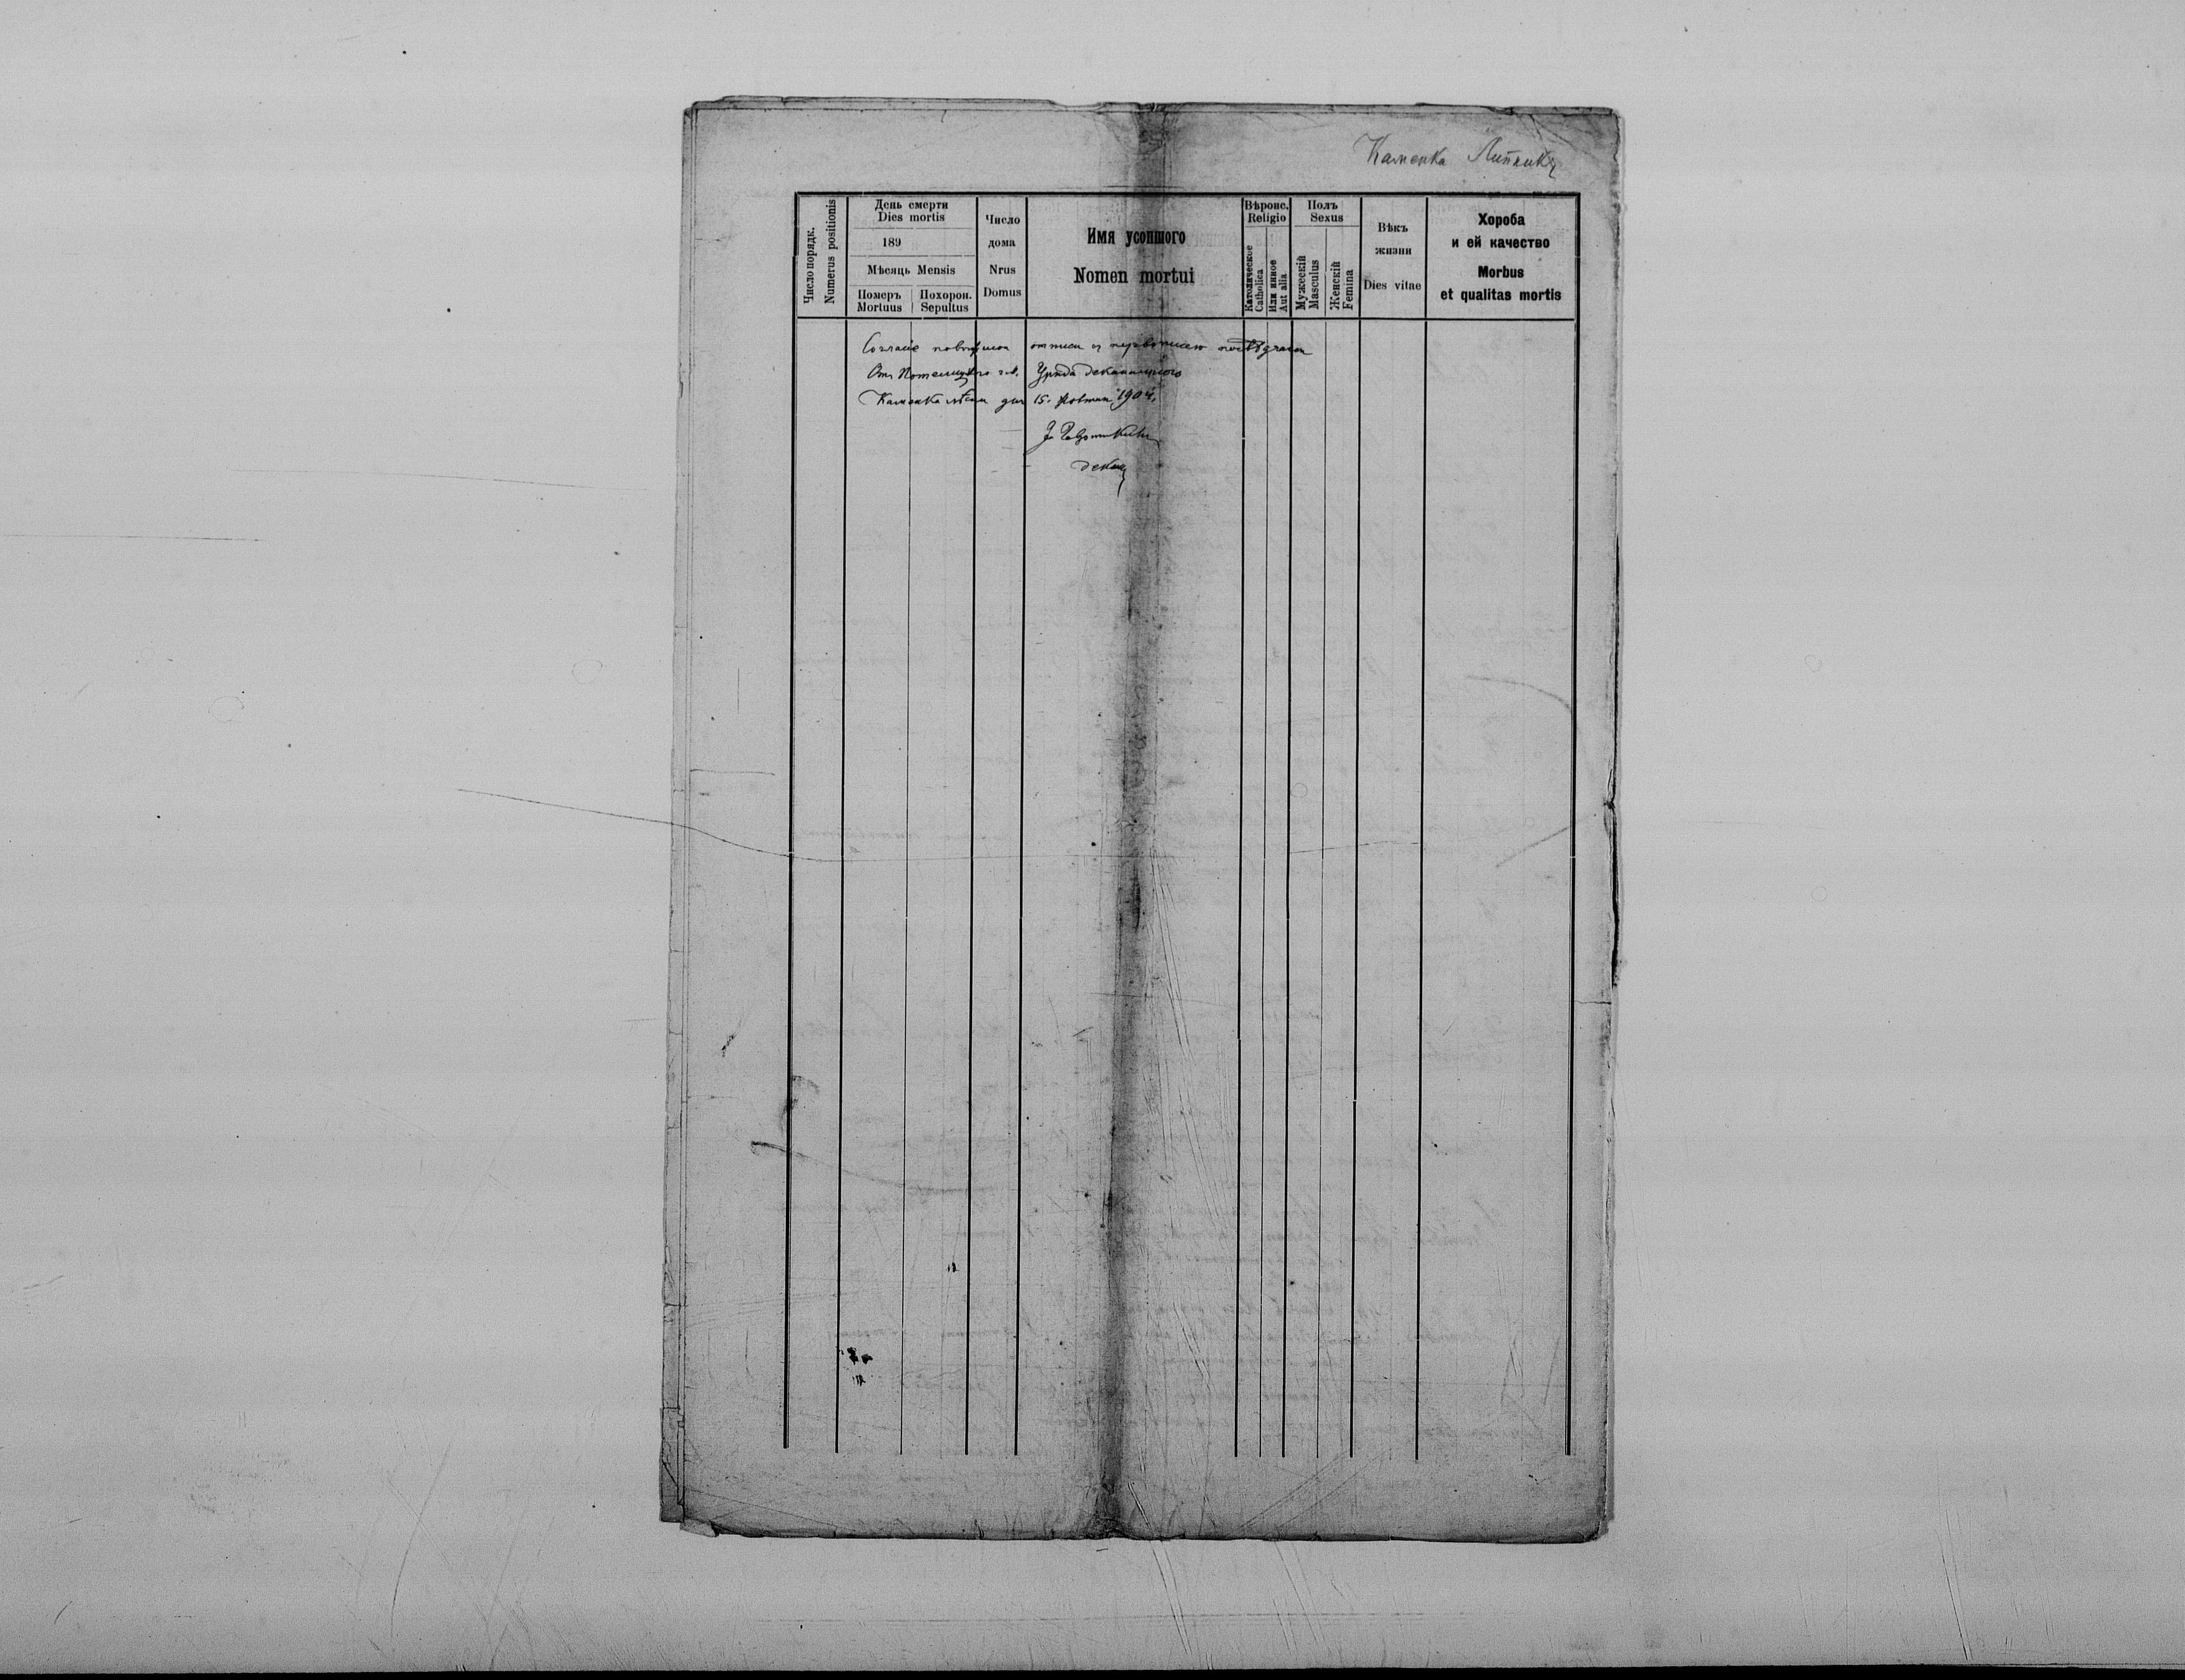 Каменка Липникъ
Число порядк.
Numerus positionis
День смерти
Dies mortis
189
Мѣсяць Mensis
Померъ
Mortuus
Похорон.
Sepultus
Число
дома
Nrus
Domus
Имя усопшого
Nomen mortui
Вѣроис.
Religio
Католическое
Catholica
Или инное
Aut alia
Полъ
Sexus
Мужескій
Masculus
Женскій
Femina
Вѣкъ
жизни
Dies vitae
Хороба
и ей качество
Morbus
et qualitas mortis
отписи съ первописею
Отъ Уряда деканального
Каменка дня 15. Жовтня 1904.
деканъ